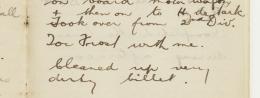 on board motor
& then on to H
Took over from 2nd Div.
Tor Frost with me.
Cleaned up very
dirty billet.